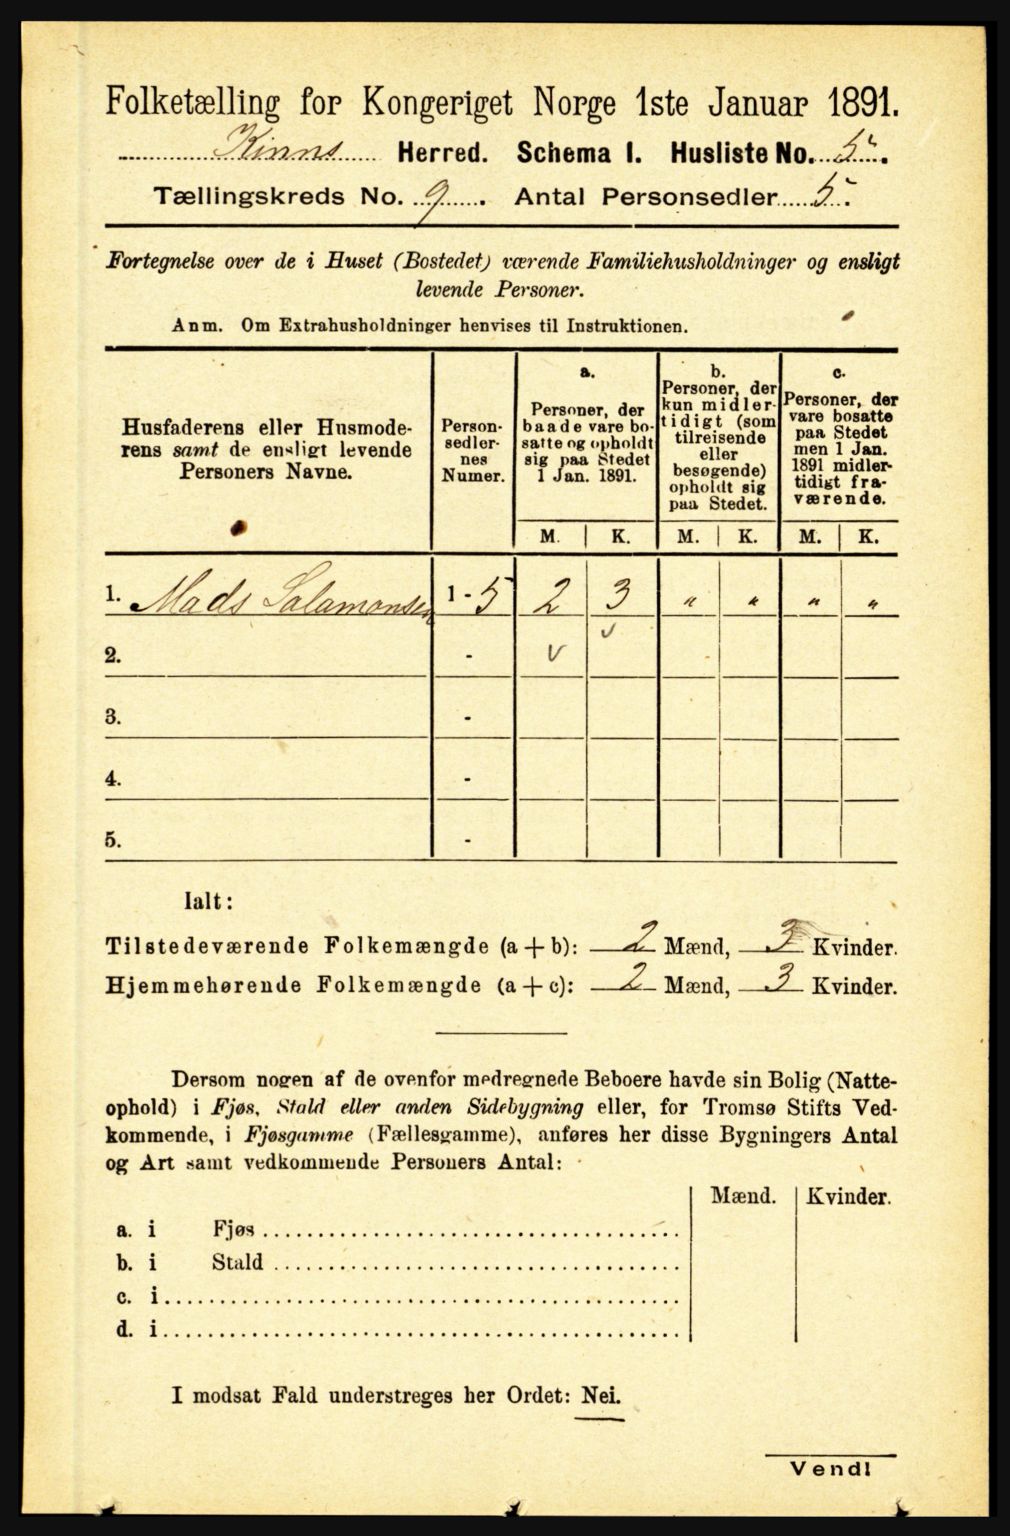 Folketælling for Kongeriget Norge 1ste Januar 1891.
Kinns Herred. Schema I. Husliste No. 5.
Tællingskreds No. 9. Antal Personsedler 5.
Fortegnelse over de i Huset (Bostedet) værende Familiehusholdninger og ensligt
levende Personer.
Anm. Om Extrahusholdninger henvises til Instruktionen.
Husfaderens eller Husmode-
rens samt de ensligt levende
Personers Navne.
Person-
sedler-
nes
Numer.
a.
Personer, der
baade vare bo-
satte og opholdt
sig paa Stedet
1 Jan. 1891.
b.
Personer, der
kun midler-
tidigt (som
tilreisende
eller
besøgende)
opholdt sig
paa Stedet.
c.
Personer, der
vare bosatte
paa Stedet
men 1 Jan.
1891 midler-
tidigt fra-
værende.
M. K. M. K. M. K.
1. Mads Salamonsen 1-5 2 3 " " " "
2. - v v
3. -
4. -
5. -
Ialt:
Tilstedeværende Folkemængde (a+b): 2 Mænd, 3 Kvinder.
Hjemmehørende Folkemængde (a+c): 2 Mænd, 3 Kvinder.
Dersom nogen af de ovenfor medregnede Beboere havde sin Bolig (Natte-
ophold) i Fjøs, Stald eller anden Sidebygning eller, for Tromsø Stifts Ved-
kommende, i Fjøsgamme (Fællesgamme), anføres her disse Bygningers Antal
og Art samt vedkommende Personers Antal:
Mænd. Kvinder.
a. i Fjøs
b. i Stald
c. i
d. i
I modsat Fald understreges her Ordet: Nei.
Vend!